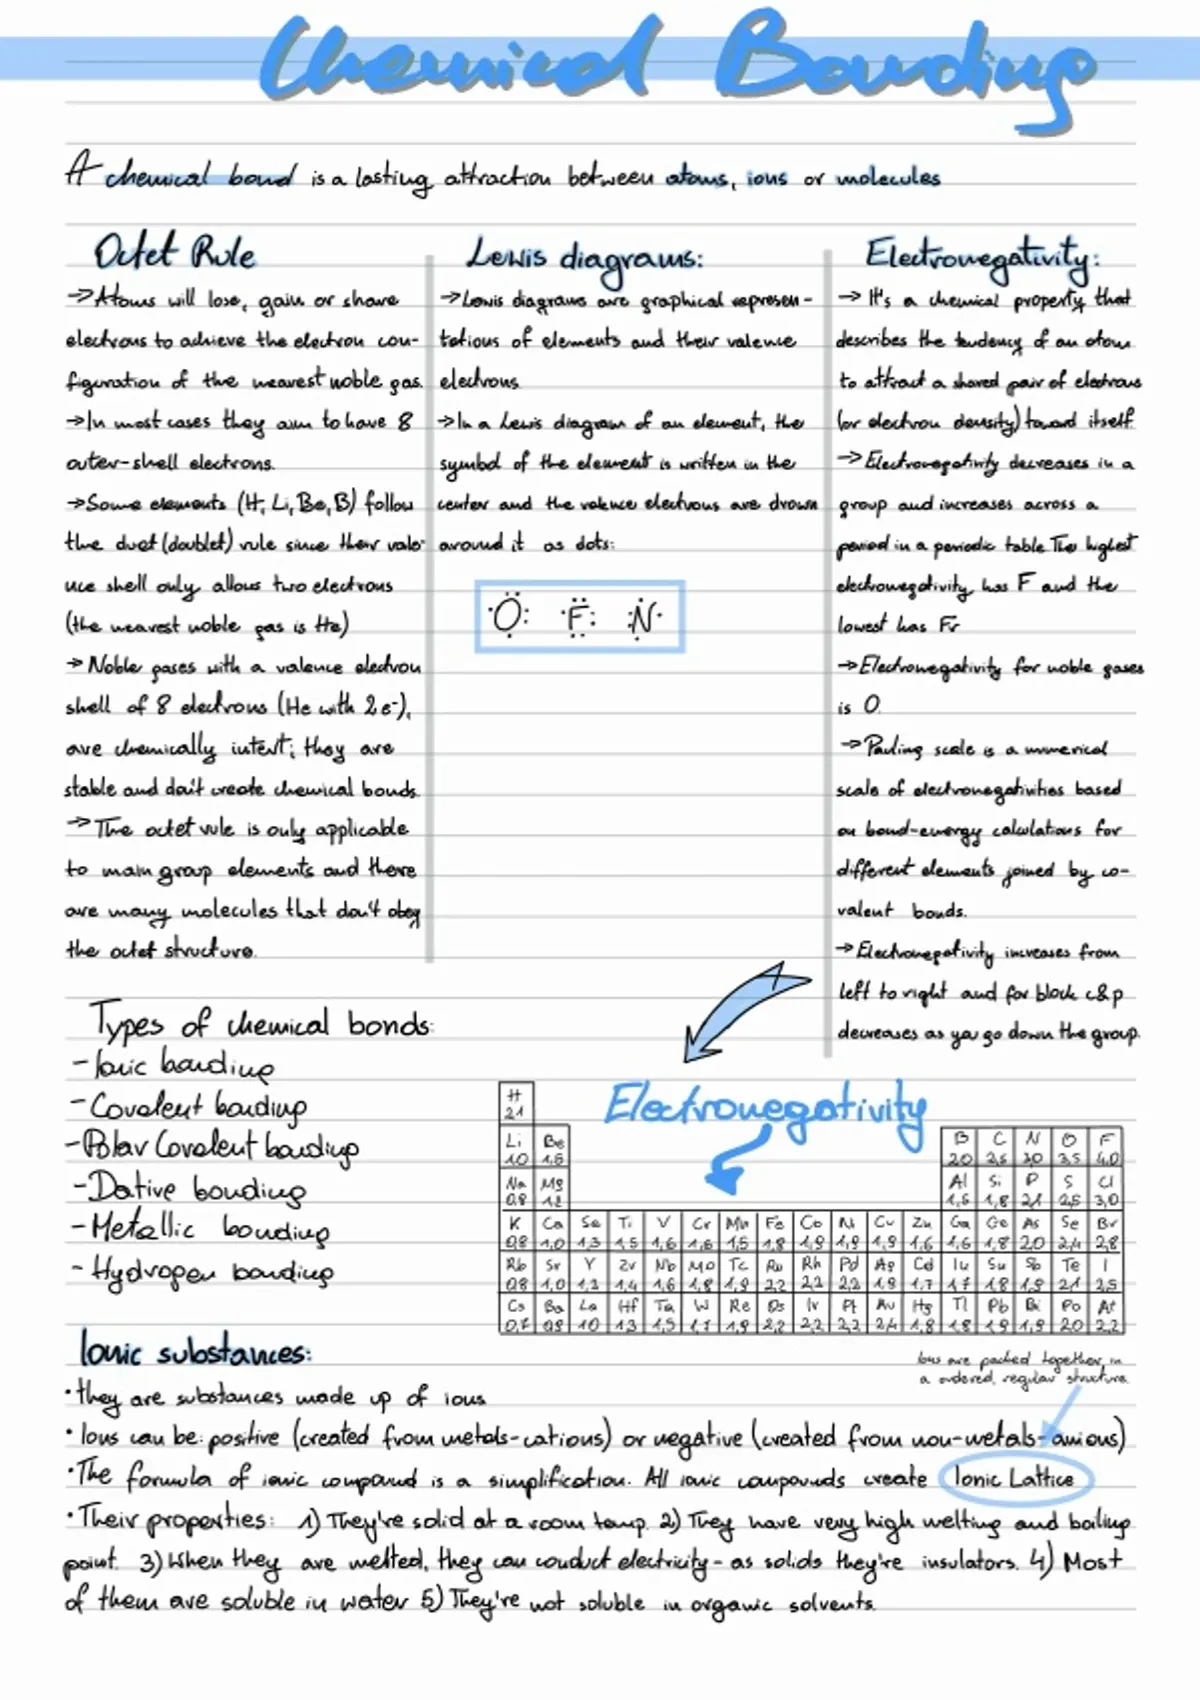 Chemical Bonding
A chemical bond is a lasting attraction between atoms, ions or molecules
Octet Rule
→Atoms will lose, gain or share
electrons to achieve the electron con-
figuration of the nearest noble gas.
→In most cases they aim to have 8
outer-shell electrons.
→Some elements (H, Li, Be, B) follow
the duet (doublet) rule since their vale-
nce shell only allows two electrons
(the nearest noble gas is He)
→Noble gases with a valence electron
shell of 8 electrons (He with 2e⁻),
are chemically intert; they are
stable and don't create chemical bonds.
→The octet rule is only applicable
to main group elements and there
are many molecules that don't obey
the octet structure.
Lewis diagrams:
→Lewis diagrams are graphical represen-
tations of elements and their valence
electrons.
→In a Lewis diagram of an element, the
symbol of the element is written in the
center and the valence electrons are drawn
around it as dots:
O F N
Electronegativity:
→It's a chemical property that
describes the tendency of an atom
to attract a shared pair of electrons
(or electron density) toward itself.
→Electronegativity decreases in a
group and increases across a
period in a periodic table The highest
electronegativity has F and the
lowest has Fr
→Electronegativity for noble gases
is 0.
→Pauling scale is a numerical
scale of electronegativities based
on bond-energy calculations for
different elements joined by co-
valent bonds.
→Electronegativity increases from
left to right and for block s&p
decreases as you go down the group.
Types of chemical bonds:
-Ionic bonding
-Covalent bonding
-Polar Covalent bonding
-Dative bonding
-Metallic bonding
-Hydrogen bonding
Electronegativity
H
2.1
Li Be B C N O F
1.0 1,5 2.0 2,5 3,0 3,5 4.0
Na Mg Al Si P S Cl
0.8 1.2 1,5 1,8 2.1 2,5 3,0
K Ca Sc Ti V Cr Mn Fe Co Ni Cu Zn Ga Ge As Se Br
0,8 1,0 1,3 1,5 1,6 1,6 1,5 1,8 1,9 1,9 1,9 1,6 1,6 1,8 2,0 2,4 2,8
Rb Sr Y Zr Nb Mo Tc Ru Rh Pd Ag Cd In Sn Sb Te I
0,8 1,0 1,2 1,4 1,6 1,8 1,9 2,2 2,2 2,2 1,9 1,7 1,7 1,8 1,9 2.1 2,5
Cs Ba La Hf Ta W Re Os Ir Pt Au Hg Tl Pb Bi Po At
0,7 0,9 1.0 1.3 1,5 1,7 1,9 2,2 2,2 2,2 2,4 1,8 1,8 1,9 1,9 2.0 2,2
Ionic substances:
Ions are packed together in
a ordered, regular structure.
•they are substances made up of ions
•Ions can be: positive (created from metals-cations) or negative (created from non-metals-anions)
•The formula of ionic compound is a simplification. All ionic compounds create Ionic Lattice
•Their properties: 1) They're solid at a room temp. 2) They have very high melting and boiling
point. 3) When they are melted, they can conduct electricity - as solids they're insulators. 4) Most
of them are soluble in water 5) They're not soluble in organic solvents.